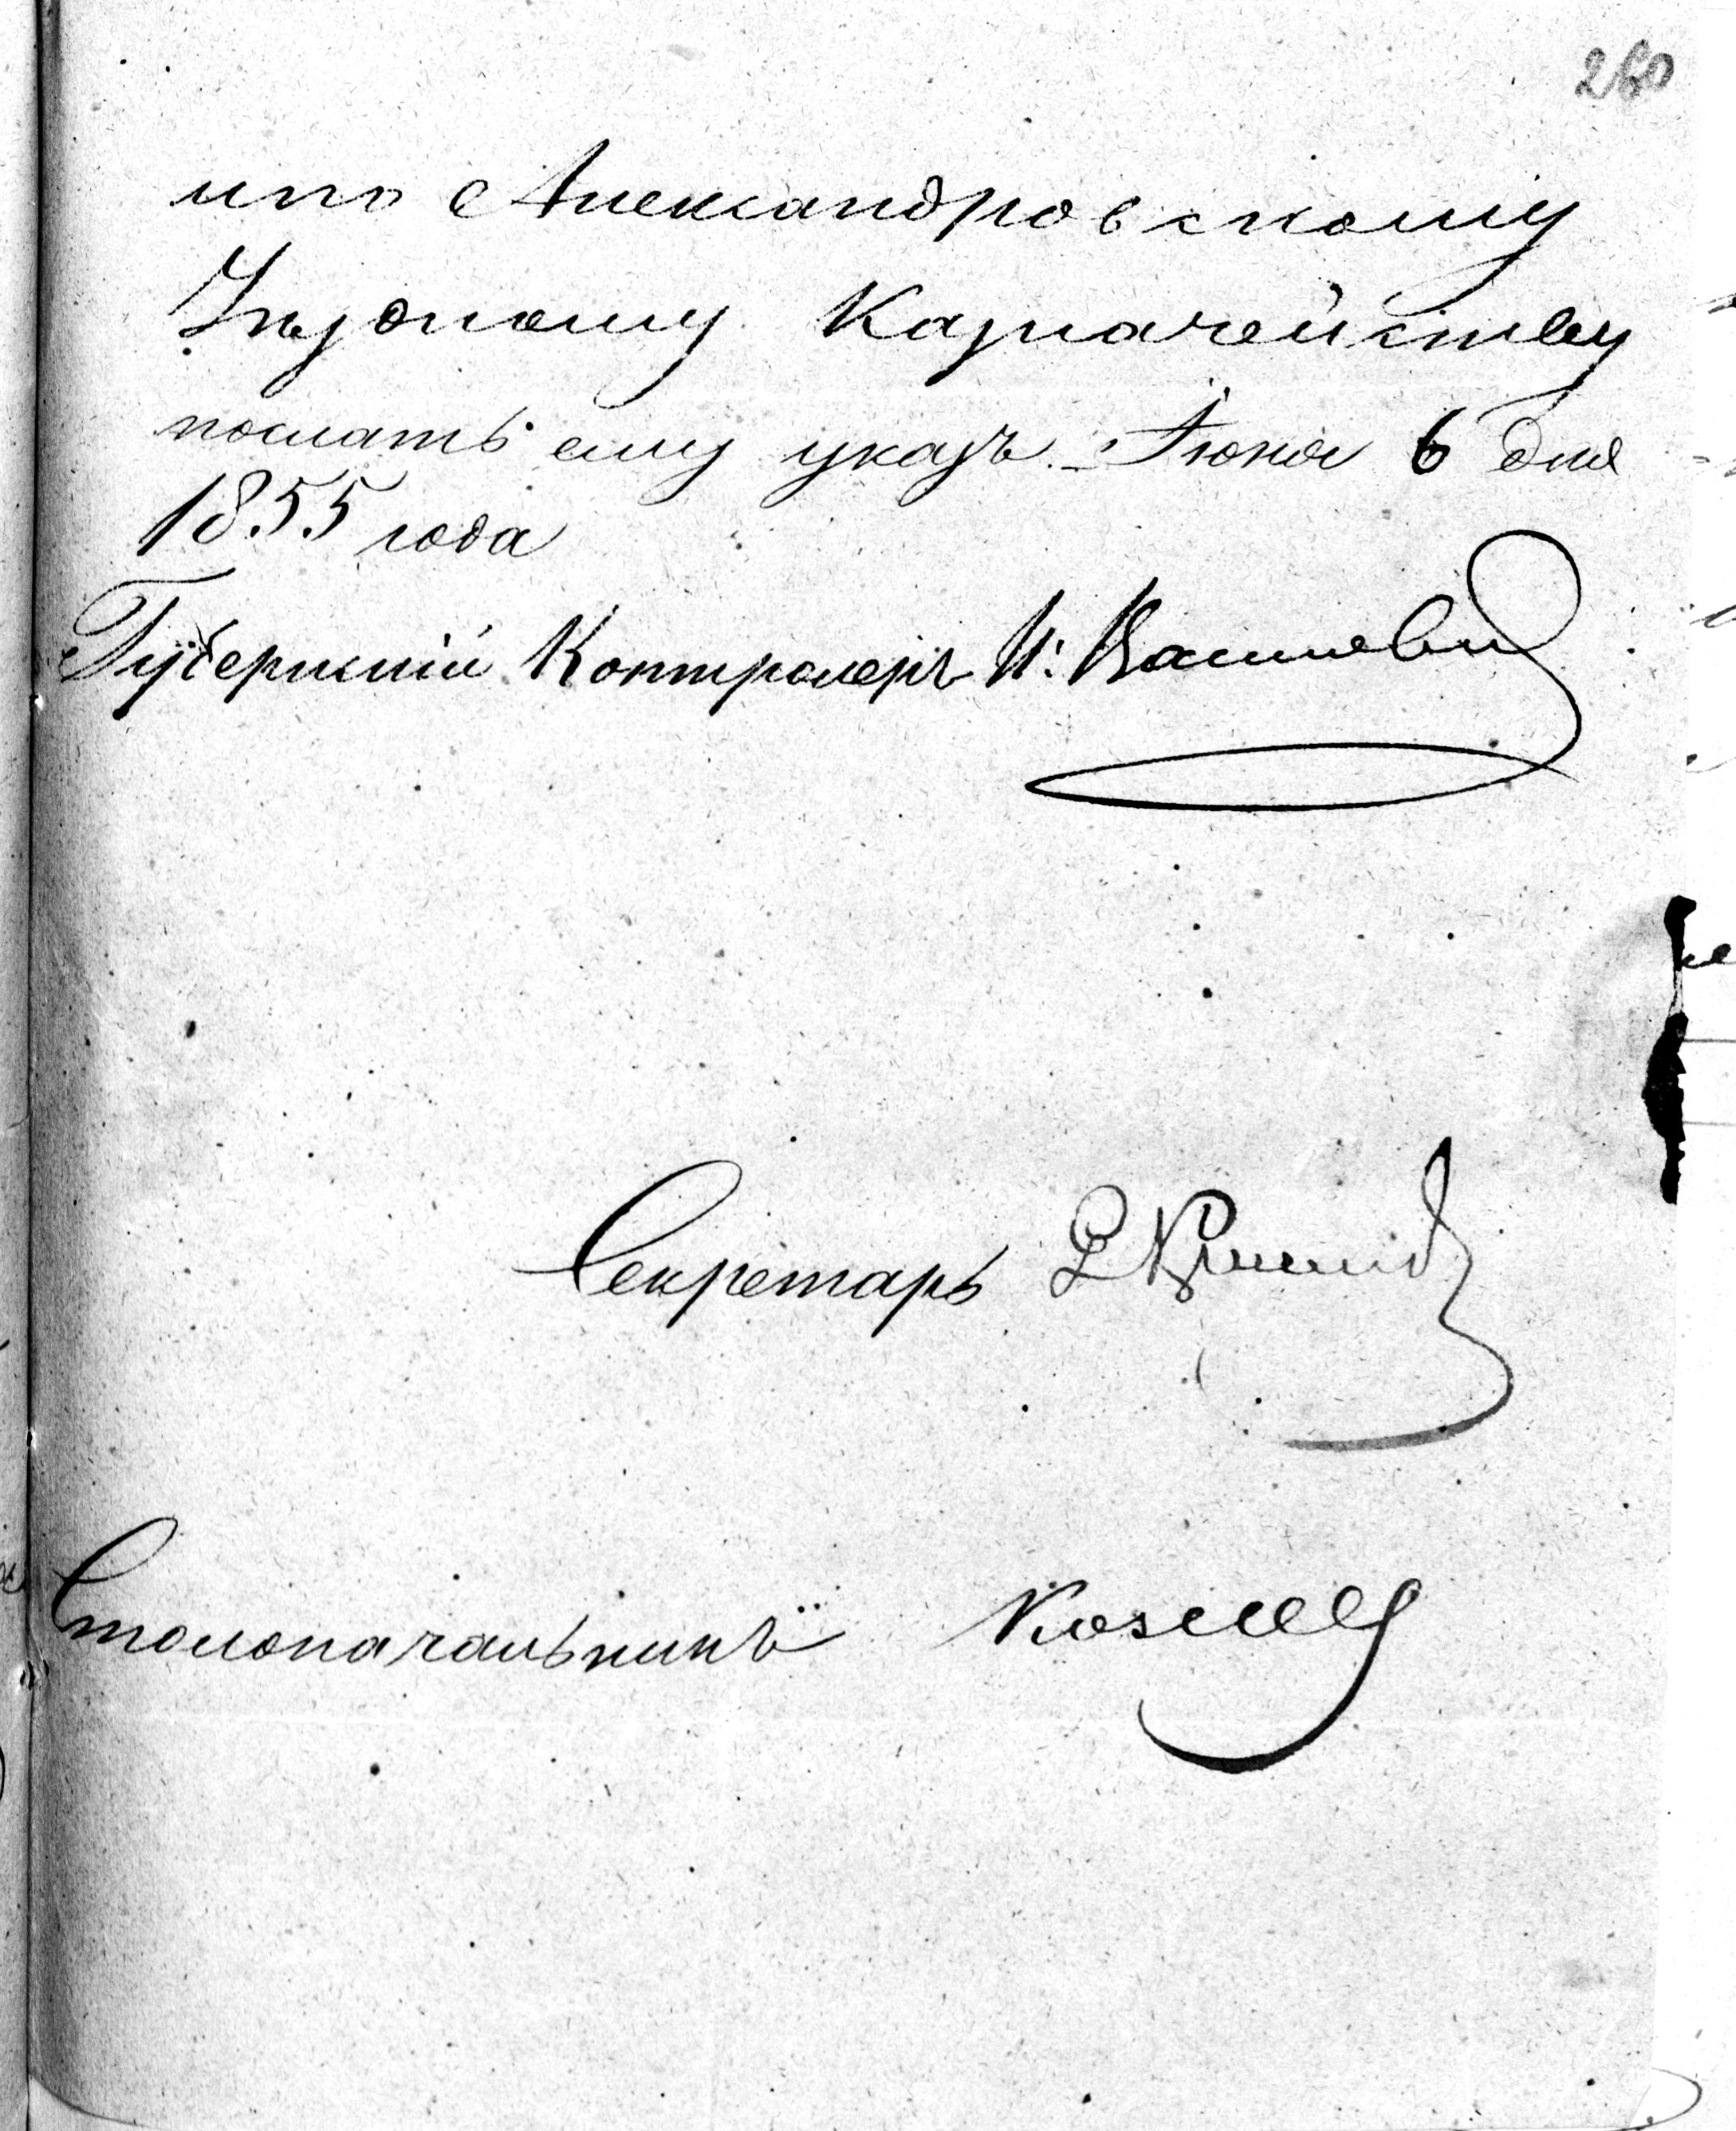 260
что Александровскому
Уѣздному Казначейству
послать ему указъ. Іюня 6 дня
1855 года
Губернскій Контролеръ И:
Секретарь
Столоначальникъ